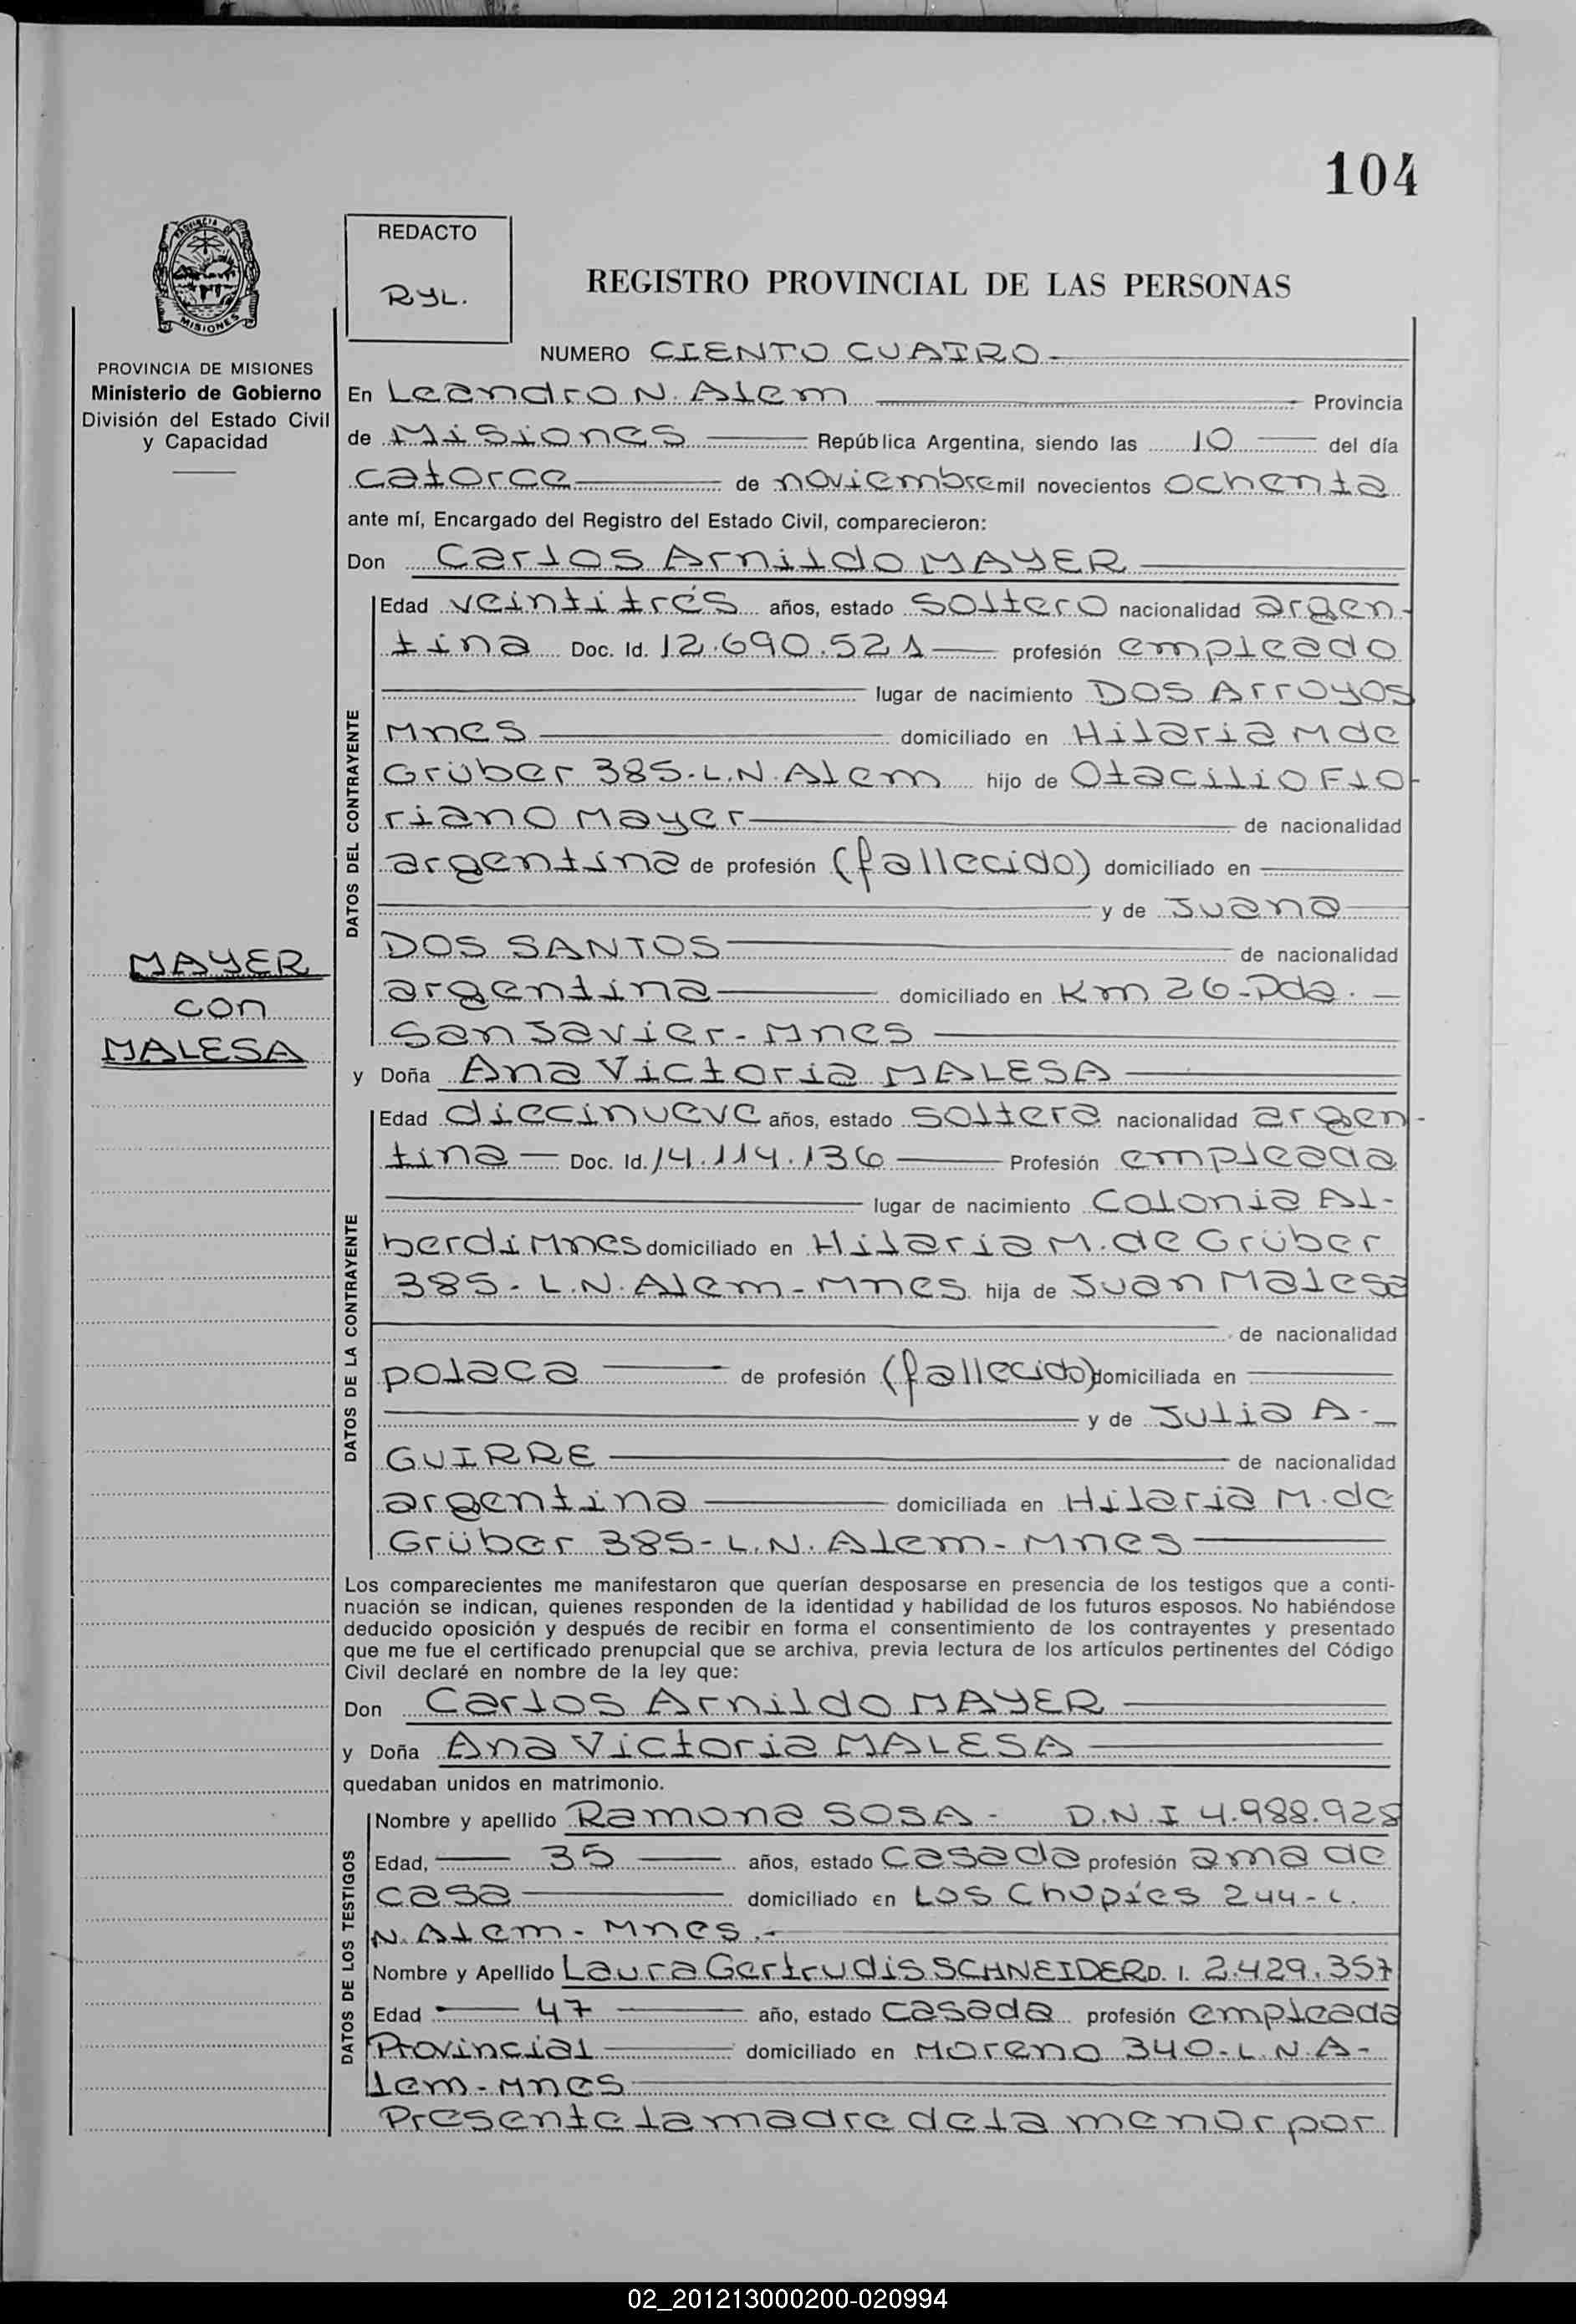 104
REDACTO
RYL.
REGISTRO PROVINCIAL DE LAS PERSONAS
PROVINCIA DE MISIONES
Ministerio de Gobierno
División del Estado Civil
y Capacidad
NUMERO CIENTO CUATRO
En Leandro N. Alem Provincia
de Misiones República Argentina, siendo las 10 del día
catorce de noviembre mil novecientos ochenta
ante mí, Encargado del Registro del Estado Civil, comparecieron:
Don Carlos Arnildo MAYER
DATOS DEL CONTRAYENTE
Edad veintitrés años, estado soltero nacionalidad argen-
tina Doc. Id. 12.690.521 profesión empleado
lugar de nacimiento Dos Arroyos
Mnes domiciliado en Hilaria M de
Grüber 385-L.N.Alem hijo de Otacilio Flo-
riano Mayer de nacionalidad
argentina de profesión (fallecido) domiciliado en
y de Juana
DOS SANTOS de nacionalidad
argentina domiciliado en Km 26-Pda.
San Javier-Mnes
MAYER
con
MALESA
y Doña Ana Victoria MALESA
DATOS DE LA CONTRAYENTE
Edad diecinueve años, estado soltera nacionalidad argen-
tina Doc. Id. 14.114.136 Profesión empleada
lugar de nacimiento Colonia Al-
berdi Mnes domiciliado en Hilaria M. de Grüber
385-L.N.Alem-Mnes hija de Juan Malesa
de nacionalidad
polaca de profesión (fallecido) domiciliada en
y de Julia A-
GUIRRE de nacionalidad
argentina domiciliada en Hilaria M. de
Grüber 385-L.N.Alem-Mnes
Los comparecientes me manifestaron que querían desposarse en presencia de los testigos que a conti-
nuación se indican, quienes responden de la identidad y habilidad de los futuros esposos. No habiéndose
deducido oposición y después de recibir en forma el consentimiento de los contrayentes y presentado
que me fue el certificado prenupcial que se archiva, previa lectura de los artículos pertinentes del Código
Civil declaré en nombre de la ley que:
Don Carlos Arnildo MAYER
y Doña Ana Victoria MALESA
quedaban unidos en matrimonio.
DATOS DE LOS TESTIGOS
Nombre y apellido Ramona SOSA - D.N.I 4.988.928
Edad, 35 años, estado casada profesión ama de
casa domiciliado en Los Chopies 244-L.
N.Alem-Mnes.-
Nombre y Apellido Laura Gertrudis SCHNEIDER D. I. 2.429.357
Edad 47 año, estado casada profesión empleada
Provincial domiciliado en Moreno 340-L.N.A-
lem-Mnes
Presente la madre de la menor por
02_201213000200-020994